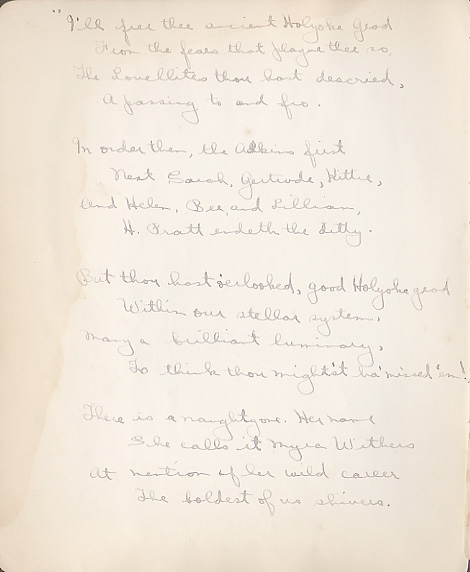 "I'll free thee ancient Holyoke grad
From the fears that plague thee so,
The Lovellites thou hast descried,
A passing to and fro.
In order then, the Adkins first
Next Sarah, Gertrude, Kittie,
And Helen, Bee, and Lillian,
H. Pratt endeth the ditty.
But thou hast o'erlooked, good Holyoke grad
Within our stellar system,
Many a brilliant luminary,
To think thou might'st ha' missed 'em!
There is a naughty one. Her name
She calls it Myra Withers
At mention of her wild career
The boldest of us shivers.